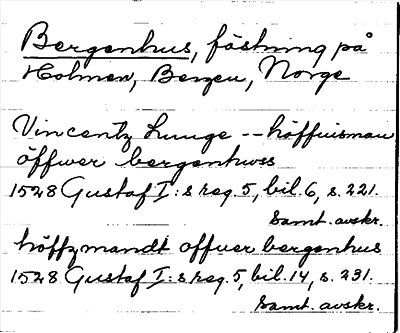 Bergenhus, fästning på
Holmen, Bergen, Norge
Vincentz Lunge -- höffuisman
öffwer bergenhwss
1528 Gustaf I:s reg. 5, bil. 6, s. 221.
Samt. avskr.
höffzmandt offuer bergenhus
1528 Gustaf I:s reg. 5, bil. 14, s. 231.
Samt. avskr.